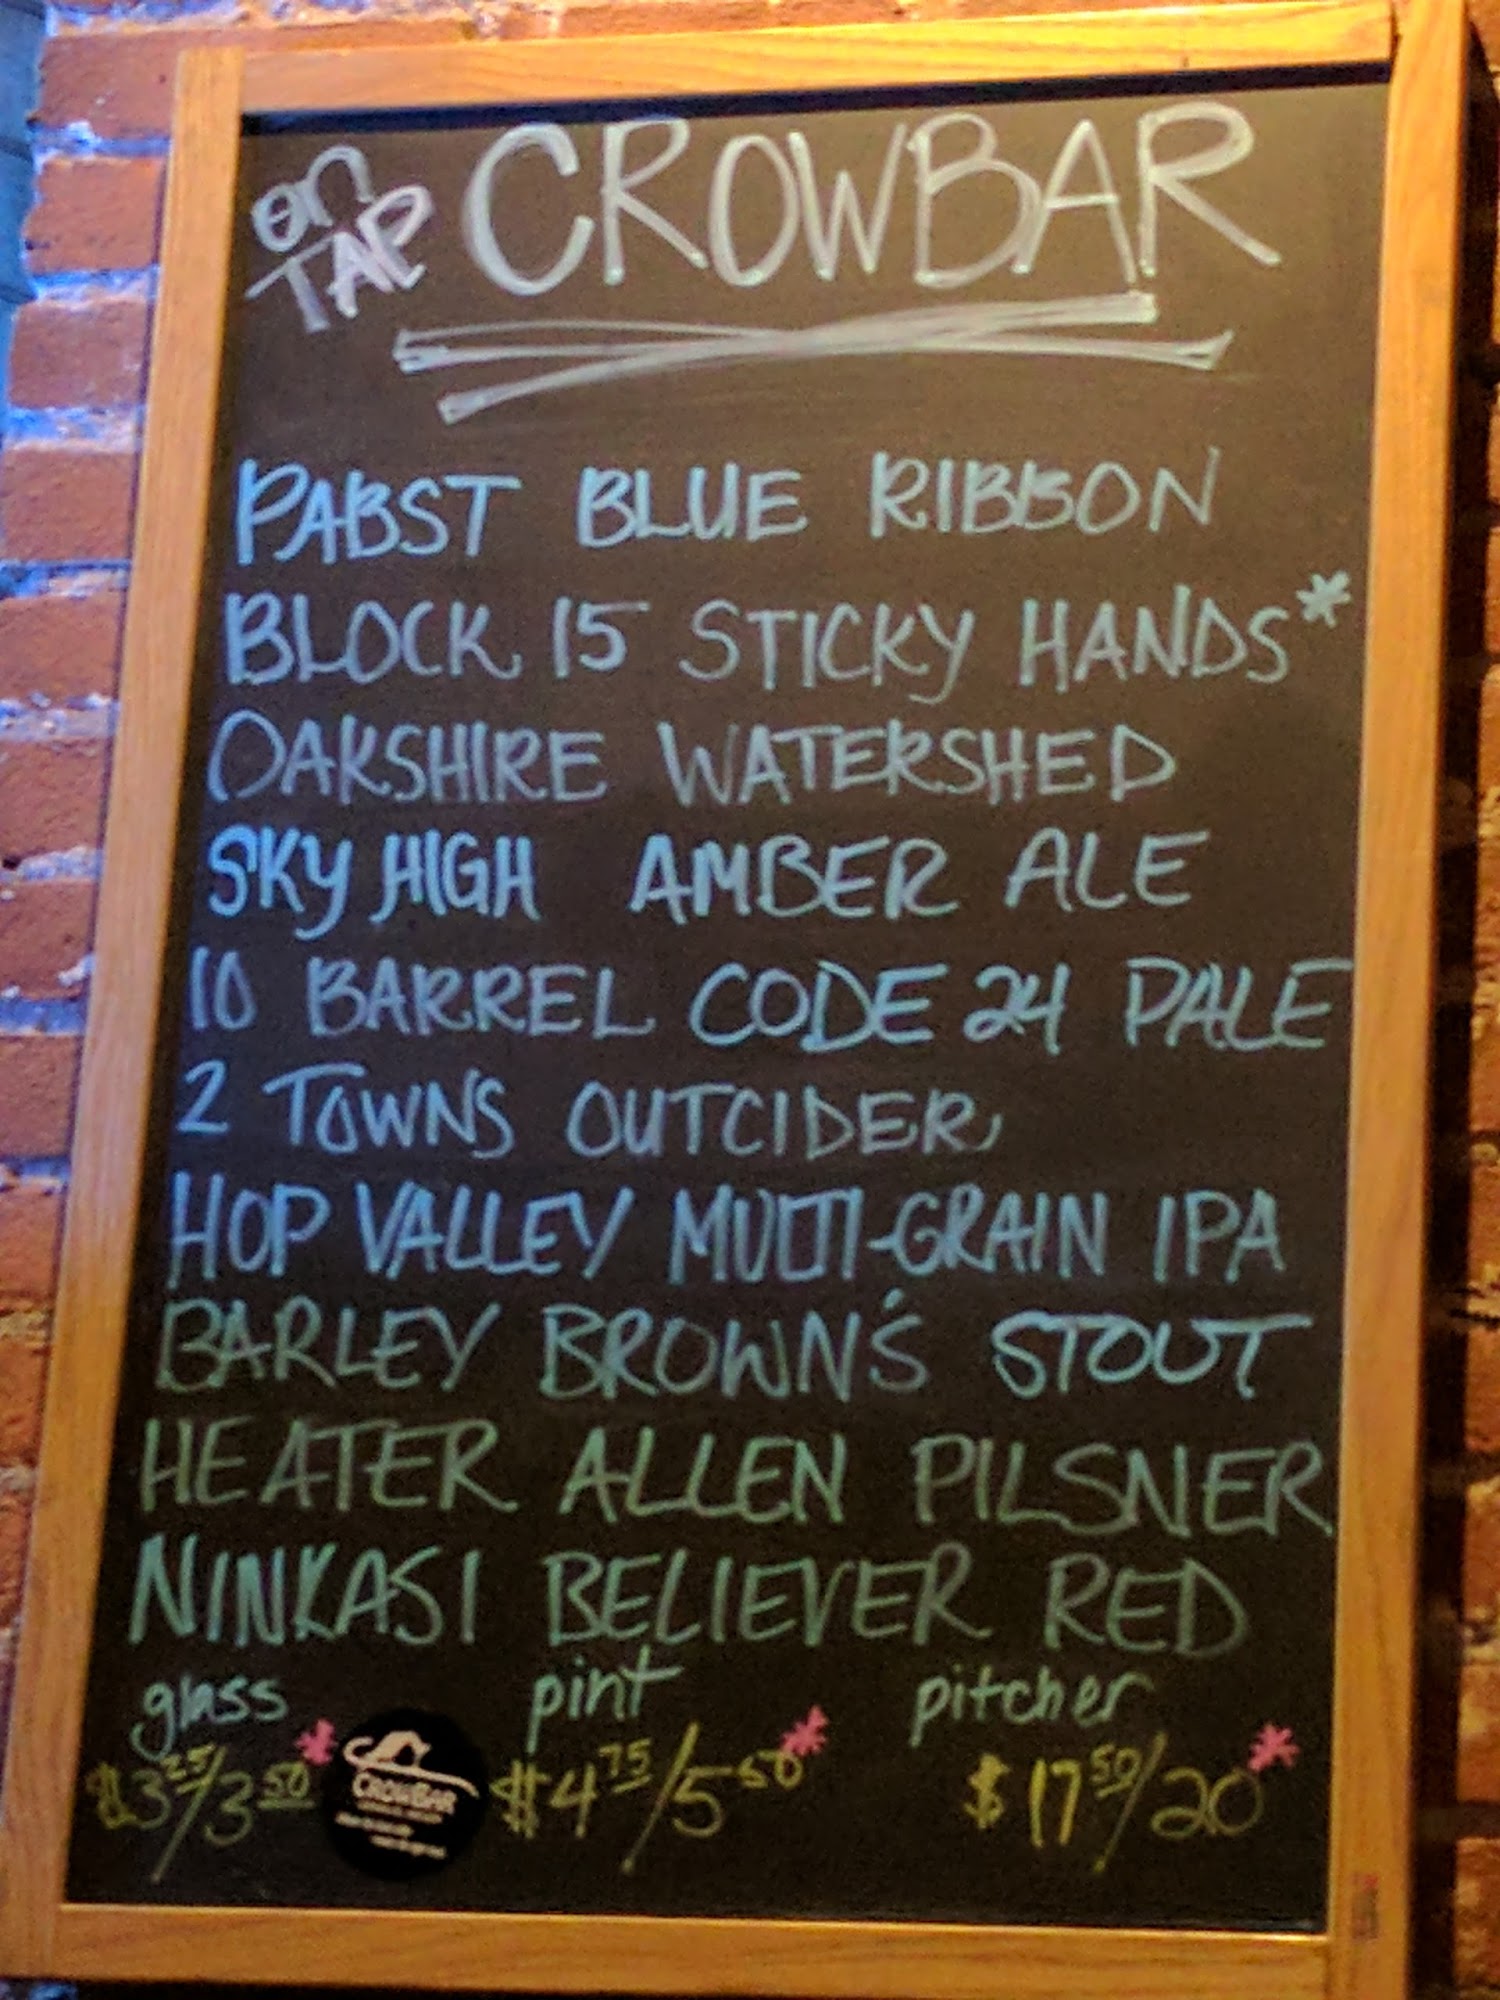 on TAP CROWBAR
PABST BLUE RIBBON
BLOCK 15 STICKY HANDS*
OAKSHIRE WATERSHED
SKY HIGH AMBER ALE
10 BARREL CODE 24 PALE
2 TOWNS OUTCIDER
HOP VALLEY MULTI-GRAIN IPA
BARLEY BROWN'S STOUT
HEATER ALLEN PILSNER
NINKASI BELIEVER RED
glass pint pitcher
$3 25/3 50* $4 75/5 50* $17 50/20*
CROWBAR